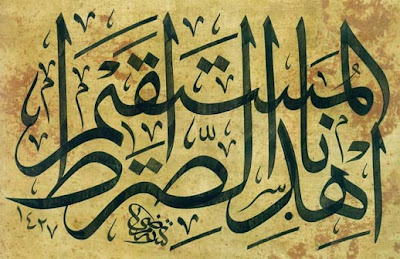 اهْدِنَا الصِّرَٰطَ
المُسْتَقِيمَ
١٤٢٧